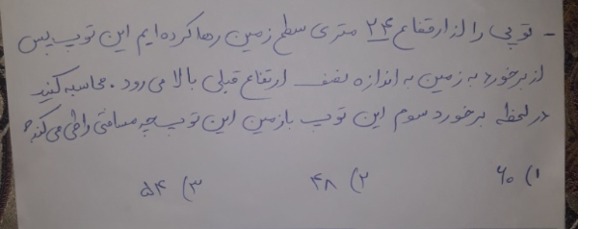 - توپی را از ارتفاع ۲۴ متری سطح زمین رها کرده ایم این توپ پس
از برخورد به زمین به اندازه نصف ارتفاع قبلی بالا می رود . محاسبه کنید
در لحظه برخورد سوم این توپ با زمین این توپ چه مسافتی را طی می کند؟
۱) ۶۰ ۲) ۴۸ ۳) ۵۴